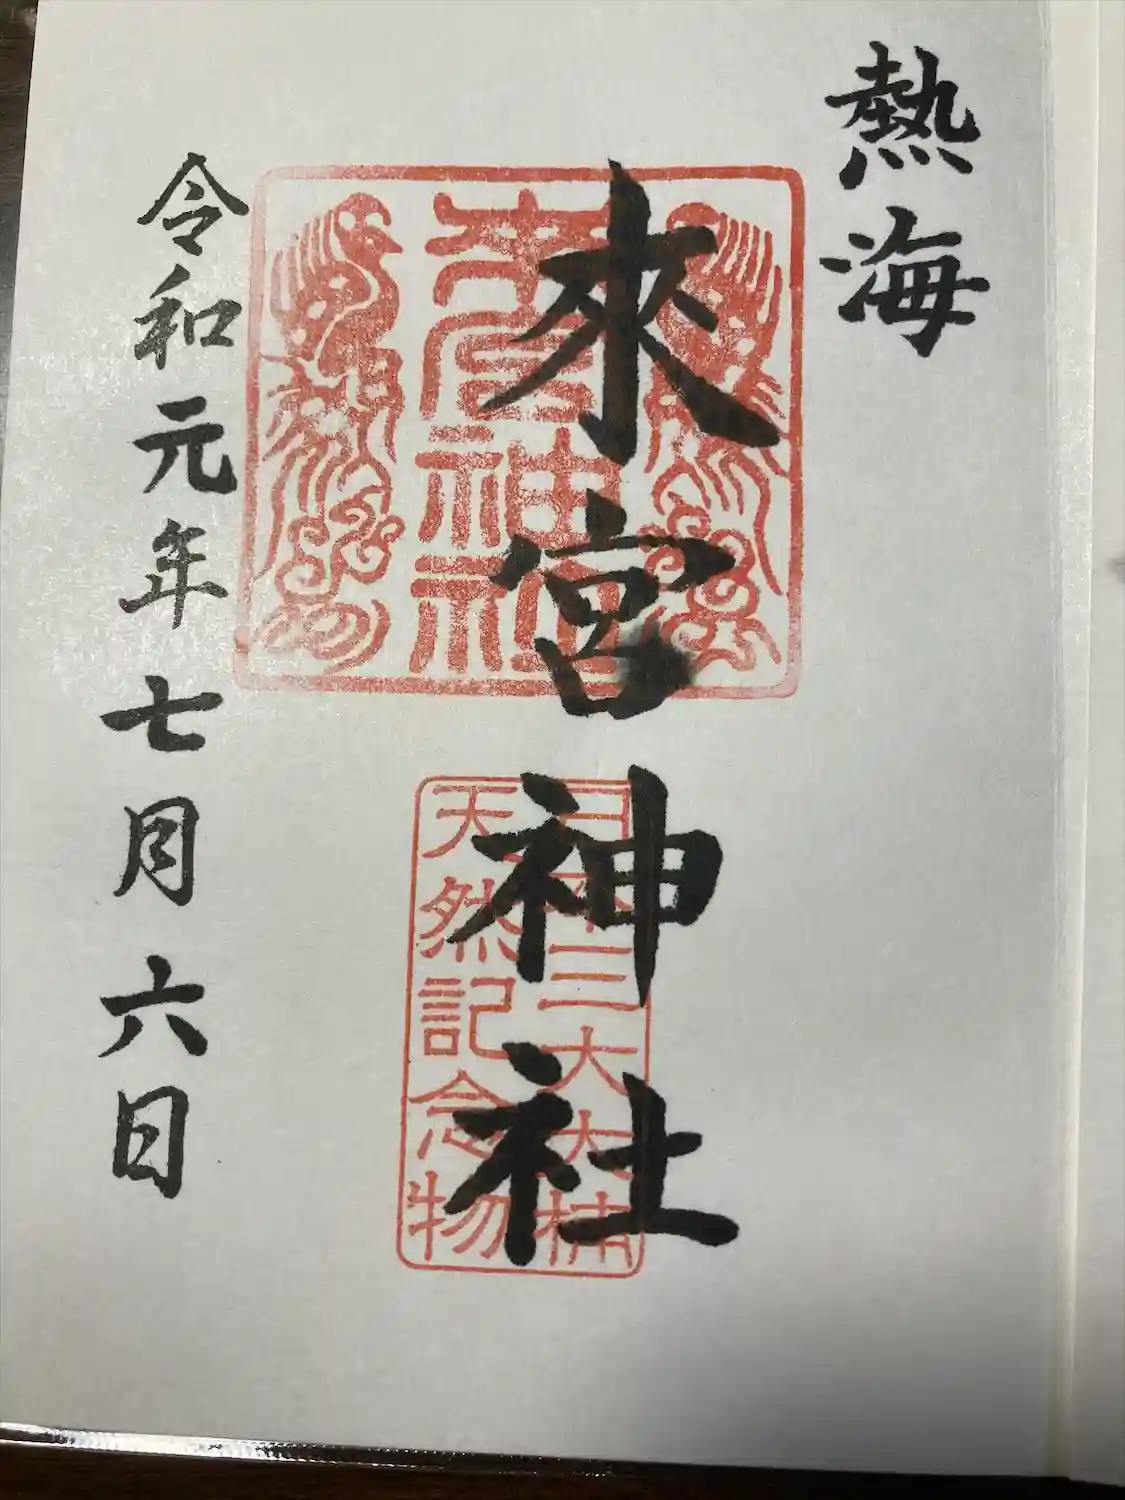 熱海
來宮神社
來宮神社
日本三大大楠
天然記念物
令和元年七月六日